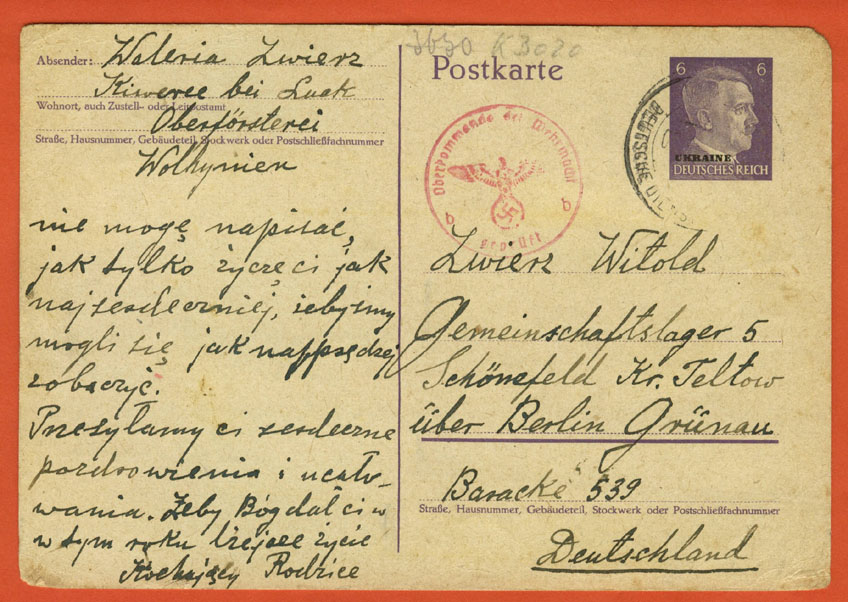 3630 K3020
Absender: Waleria Zwierz
Kiwerce bei Luck
Wohnort, auch Zustell- oder Leitpostamt
Oberförsterei
Straße, Hausnummer, Gebäudeteil, Stockwerk oder Postschließfachnummer
Wolhynien
nie mogę napisać,
jak tylko życzę ci jak
najserdeczniej, żebyśmy
mogli się jak najprędzej
zobaczyć.
Przesyłamy ci serdeczne
pozdrowienia i ucało-
wania. Żeby Bóg dał ci w
w tym roku lżejsze życie
Kochający Rodzice
Postkarte
6 6
UKRAINE
DEUTSCHES REICH
DEUTSCHE DIENSTPOST
Oberkommando der Wehrmacht
b b
geprüft
Zwierz Witold
Gemeinschaftslager 5
Schönefeld Kr. Teltow
über Berlin Grünau
Baracke 539
Straße, Hausnummer, Gebäudeteil, Stockwerk oder Postschließfachnummer
Deutschland